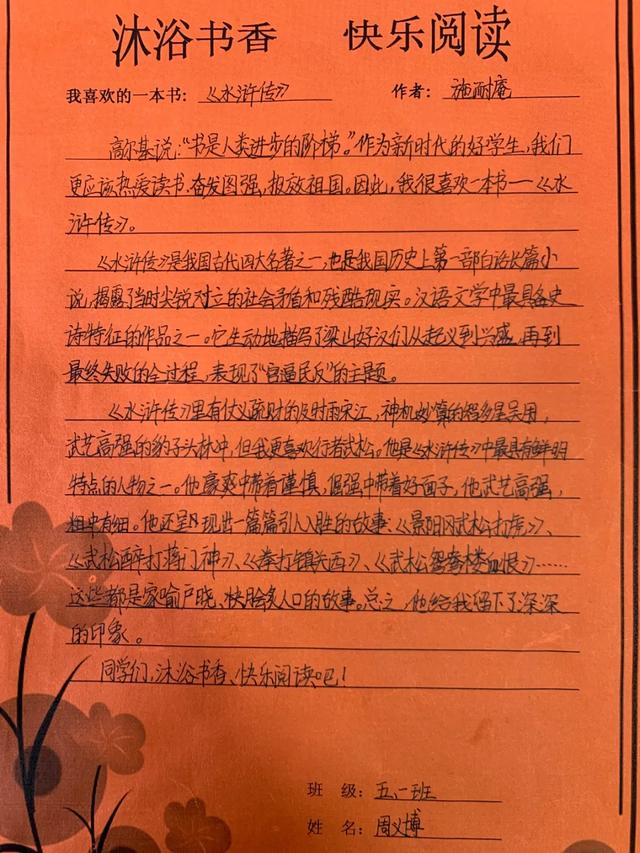 沐浴书香 快乐阅读
我喜欢的一本书：《水浒传》 作者：施耐庵
高尔基说：“书是人类进步的阶梯。”作为新时代的好学生，我们
更应该热爱读书、奋发图强，报效祖国。因此，我很喜欢一本书——《水
浒传》。
《水浒传》是我国古代四大名著之一，也是我国历史上第一部白话长篇小
说，揭露了当时尖锐对立的社会矛盾和残酷现实。汉语文学中最具备史
诗特征的作品之一。它生动地描写了梁山好汉们从起义到兴盛，再到
最终失败的全过程，表现了“官逼民反”的主题。
《水浒传》里有仗义疏财的及时雨宋江，神机妙算的智多星吴用，
武艺高强的豹子头林冲，但我更喜欢行者武松。他是《水浒传》中最具有鲜明
特点的人物之一。他豪爽中带着谨慎，倔强中带着好面子，他武艺高强，
粗中有细。他还呈现出一篇篇引人入胜的故事、《景阳冈武松打虎》、
《武松醉打蒋门神》、《拳打镇关西》、《武松鸳鸯楼血恨》……
这些都是家喻户晓、快脍炙人口的故事。总之，他给我留下了深深
的印象。
同学们，沐浴书香、快乐阅读吧！
班 级：五、一班
姓 名：周义博